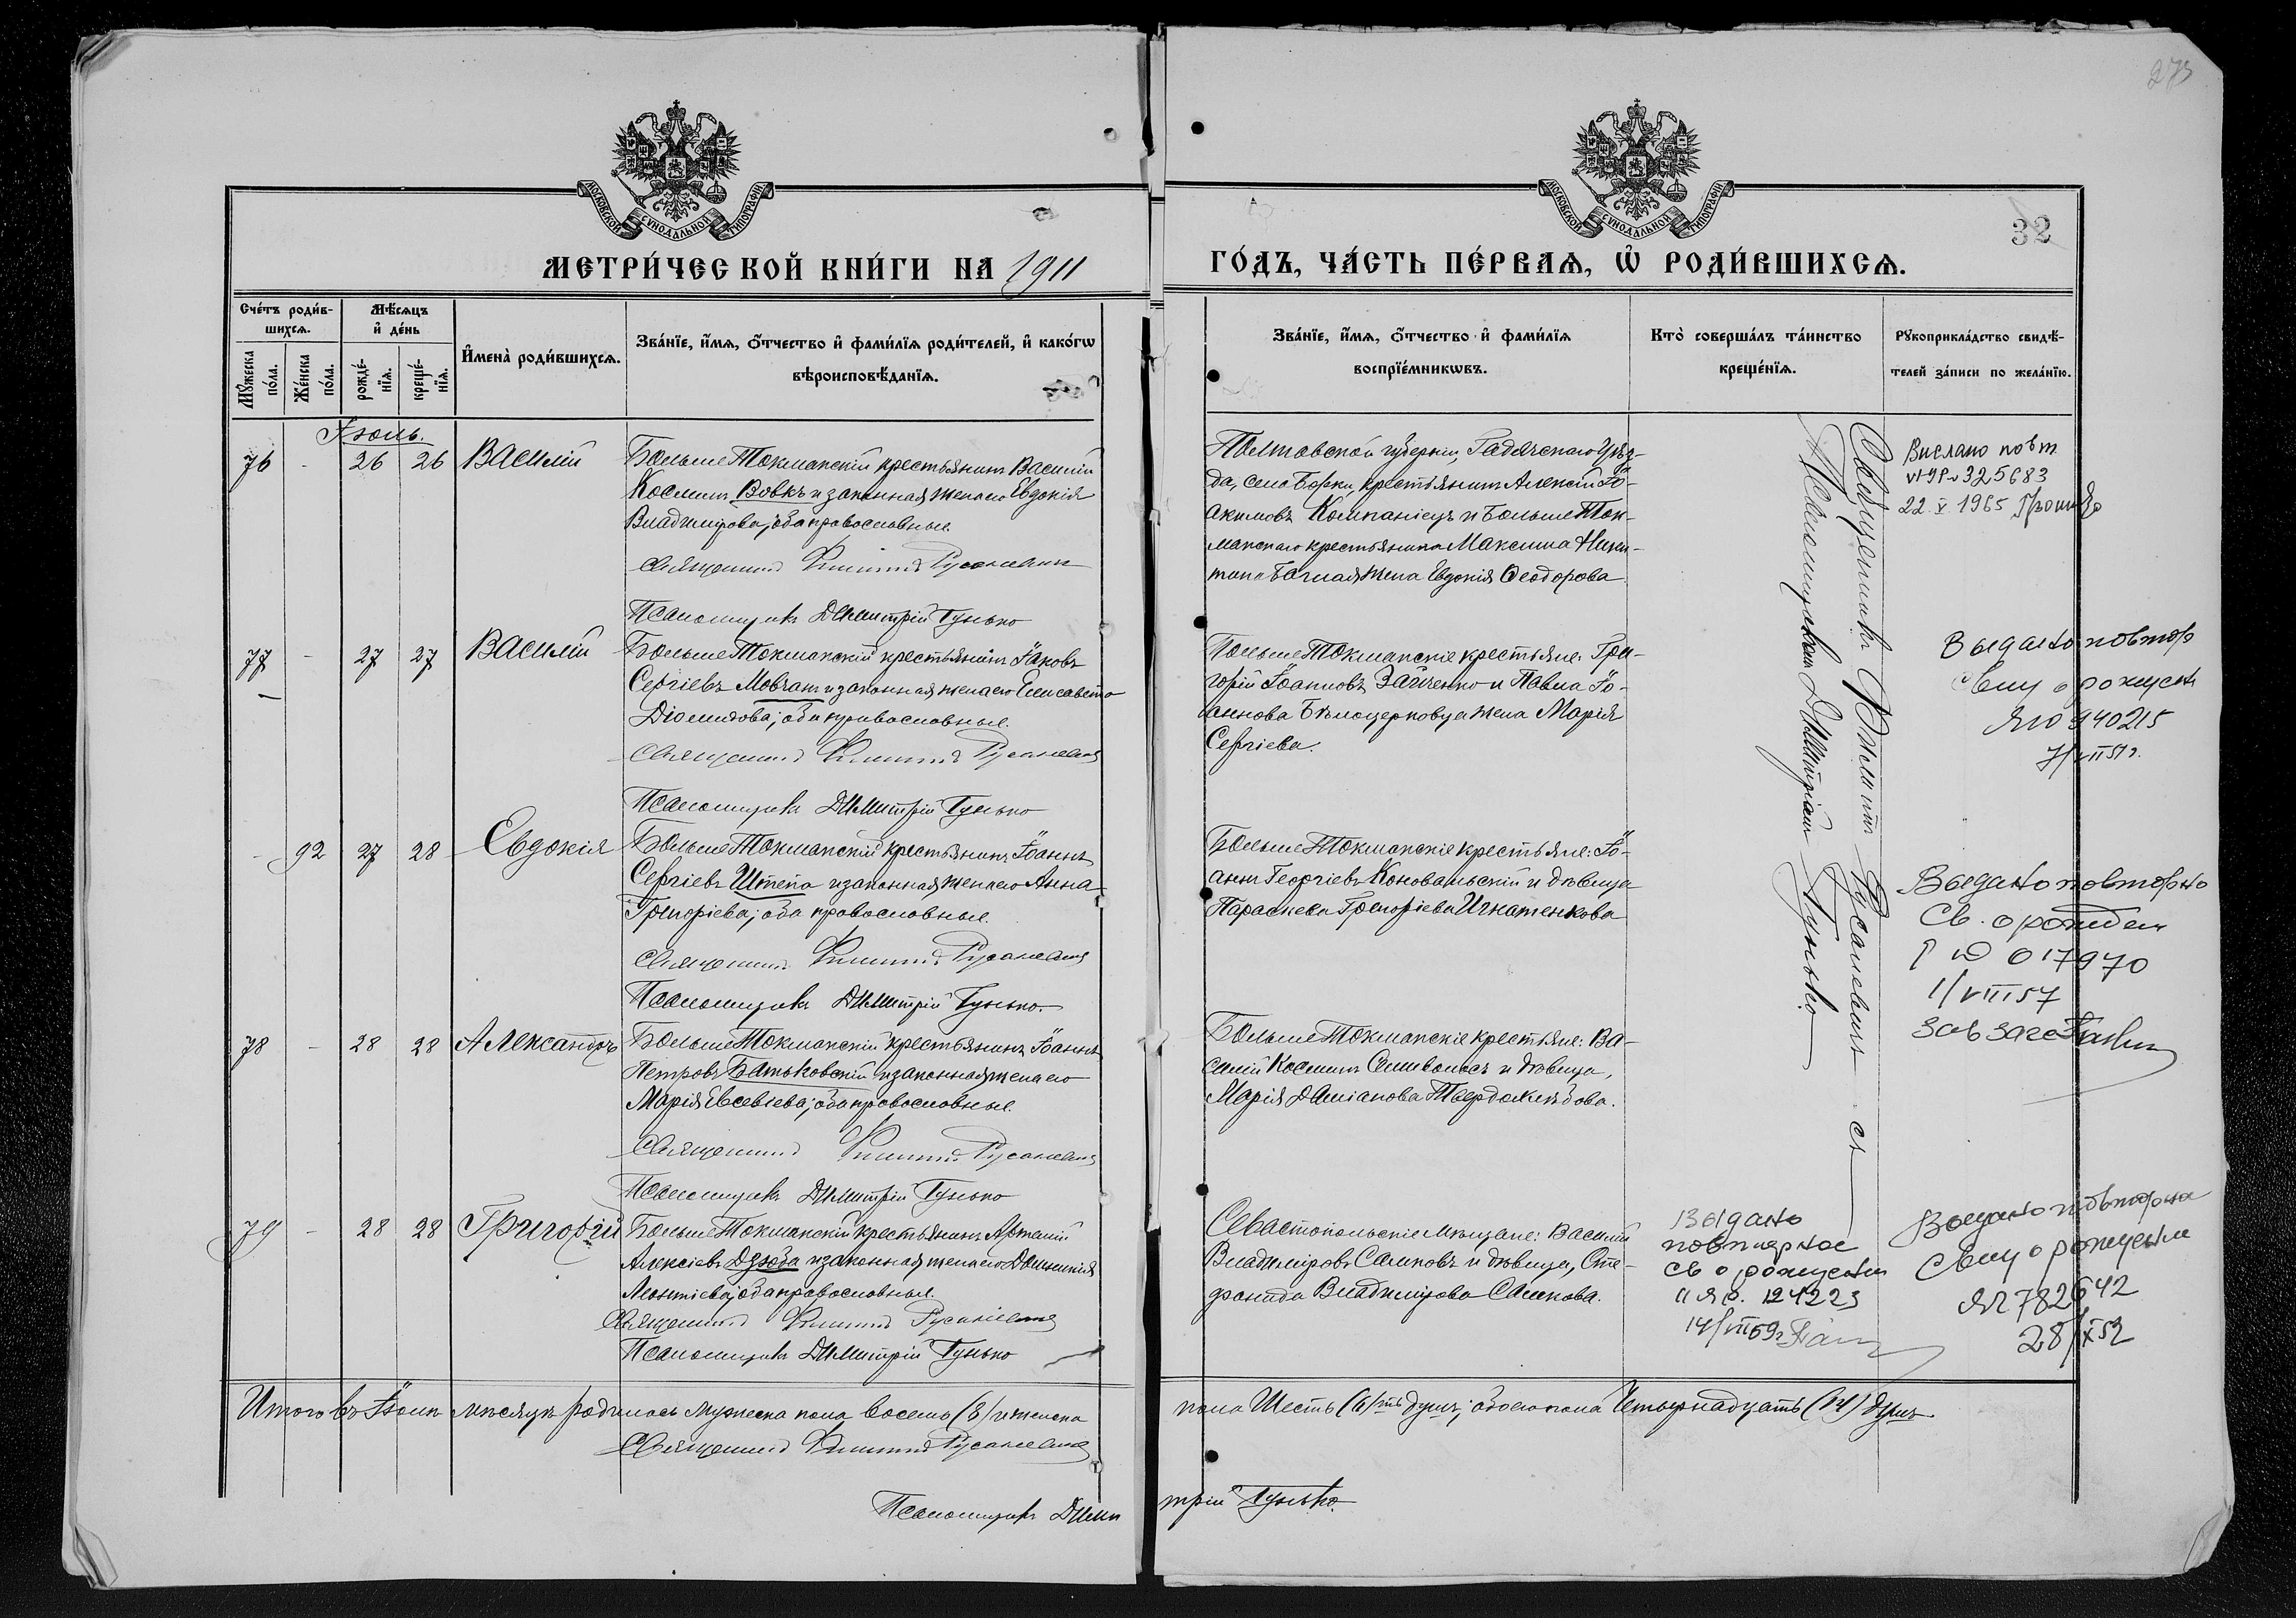 273
МОСКОВСКОЙ СУНОДАЛЬНОЙ ТИПОГРАФІИ
МОСКОВСКОЙ СУНОДАЛЬНОЙ ТИПОГРАФІИ
32
МЕТРИ́ЧЕСКОЙ КНИ́ГИ НА 1911
ГО́ДЪ, ЧА́СТЬ ПЕ́РВАЯ, Ѡ҆ РОДИ́ВШИХСЯ.
Сче́тъ роди́в-
шихся.
Мѣ́сяцъ
и҆ де́нь
Мꙋ́жеска
по́ла.
Же́нска
по́ла.
рожде́-
нїя.
креще́-
нїя.
И҆мена̀ роди́вшихся.
Зва́нїе, и҆́мя, ѻ҆́тчество и҆ фами́лїя роди́телей, и҆ како́гѡ
вѣроисповѣ́данїя.
Зва́нїе, и҆́мя, ѻ҆́тчество и҆ фами́лїя
воспрїе́мникѡвъ.
Кто̀ соверша́лъ та́инство
креще́нїя.
Рꙋкоприкла́дство свидѣ́-
телей за́писи по жела́нїю.
Іюль.
76 - 26 26 Василій
Больше Токмакскій крестьянинъ Василій
Космин Вовкъ и законная жена его Евдокія
Владимірова; оба православные.
Священникъ Филиппъ Русаневичъ
Псаломщикъ Димитрій Гунько
Полтавской губерніи, Гадячскаго уѣз-
да, села Борки, крестьянинъ Алексій Іо-
акимовъ Компаніецъ и Больше Ток-
макскаго крестьянина Максима Ники-
жена Евдокія Ѳеодорова
Вислано повт
325683
22 V 1965
77 - 27 27 Василій
Больше Токмакскій крестьянинъ Іаковъ
Сергіевъ Мовчанъ и законная жена его Елисавета
Діомидова; оба православные.
Священникъ Филиппъ Русаневичъ
Псаломщикъ Димитрій Гунько
Больше Токмакскіе крестьяне: Гри-
горій Іоанновъ Зайченко и Павла Іо-
аннова Бѣлоцерковца жена Марія
Сергіева.
Выдано повтор
свид о рожден
ЯЮ 940215
7/VII 51 г.
- 92 27 28 Евдокія
Больше Токмакскій крестьянинъ Іоаннъ
Сергіевъ Штепа и законная жена его Анна
Григоріева; оба православные.
Священникъ Филиппъ Русаневичъ
Псаломщикъ Димитрій Гунько.
Больше Токмакскіе крестьяне: Іо-
аннъ Георгіевъ Коновальскій и дѣвица
Параскева Григоріева Игнатенкова
Выдано повторно
Св. о рожден
017970
1/VIII 57
зав загс
78 - 28 28 Александръ
Больше Токмакскій крестьянинъ Іоаннъ
Петровъ Батьковскій и законная жена его
Марія Евсевіева; оба православные.
Священникъ Филиппъ Русаневичъ
Псаломщикъ Димитрій Гунько
Больше Токмакскіе крестьяне: Ва-
силій Космин Сиволапъ и дѣвица,
Марія Даміанова Твердохлѣбова.
79 - 28 28 Григорій
Больше Токмакскій крестьянинъ Артемій
Алексіевъ Дзюба и законная жена его Домникія
Леонтіева; оба православные.
Священникъ Филиппъ Русаневичъ
Псаломщикъ Димитрій Гунько
Севастопольскіе мѣщане: Василій
Владиміровъ Салковъ и дѣвица, Сте-
фанида Владимірова Салкова.
Выдано
повторное
св о рожден
124223
14/VII 59 г
Выдано повторна
свид о рождении
782642
28/X 52
Священникъ Филиппъ Русаневичъ съ
Псаломщикомъ Димитріемъ Гунько.
Итого въ Іюлѣ мѣсяцѣ родилось мужеска пола восемь (8) и женска
пола шесть (6)ть душъ; обоего пола четырнадцать (14) душъ.
Священникъ Филиппъ Русаневичъ
Псаломщикъ Дими
трій Гунько.